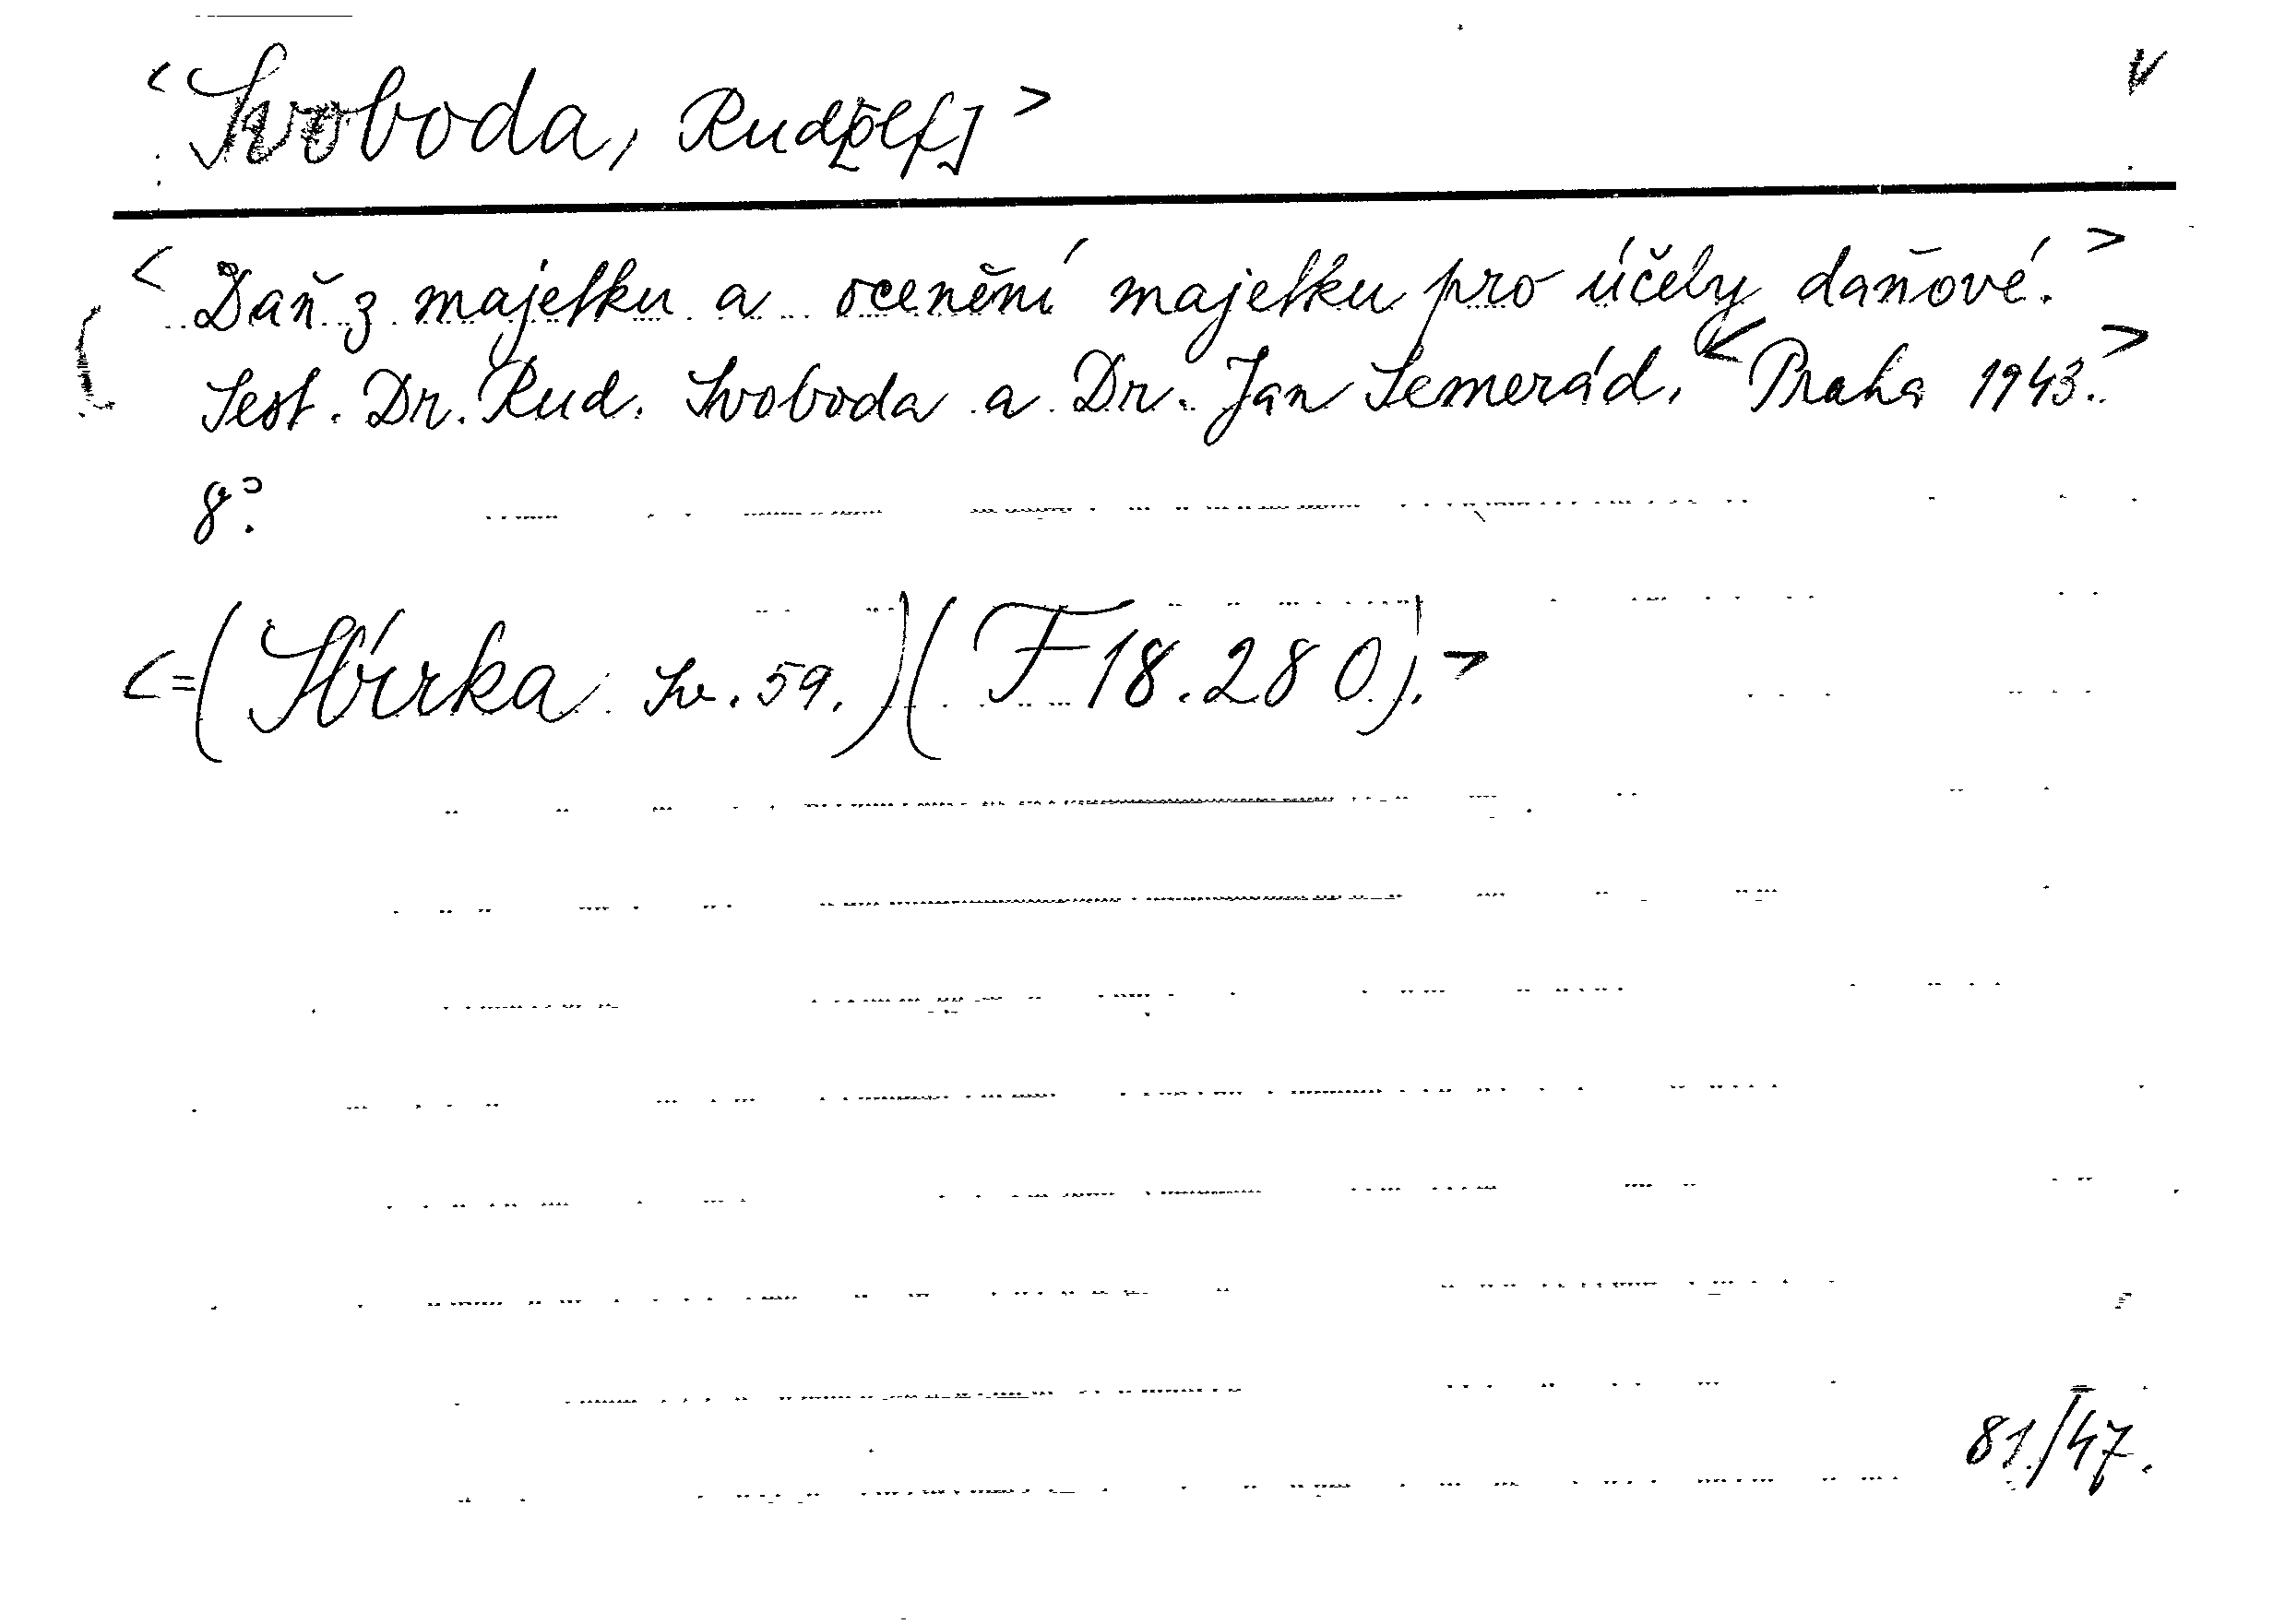 <Svoboda, Rud[olf]> v
<Daň z majetku a ocenění majetku pro účely daňové.>
Sest. Dr. Rud. Svoboda a Dr. Jan Semerád. <Praha 1943.>
8°.
<=(Sbírka Sv. 59.)(F 18.280).>
81/47.